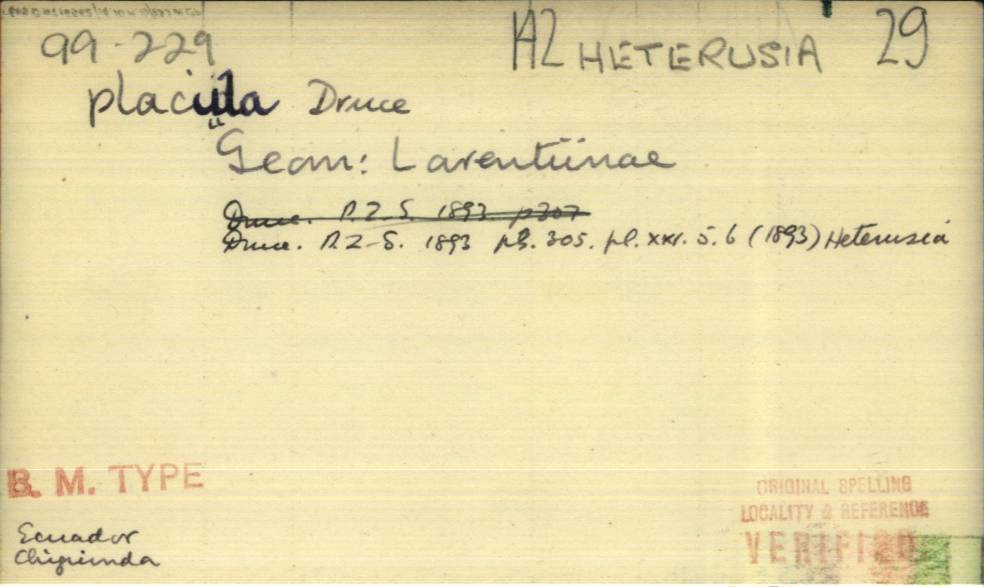 99-229
142 HETERUSIA 29
placula Druce
Geom: Larentiinae
Druce. P.Z.S. 1893 p307
Druce. P.Z.S. 1893 p. 305. pl. xxi. 5. 6 (1893) Heterusia
B. M. TYPE
Ecuador
Chiguinda
ORIGINAL SPELLING
LOCALITY & REFERENCE
VERIFIED